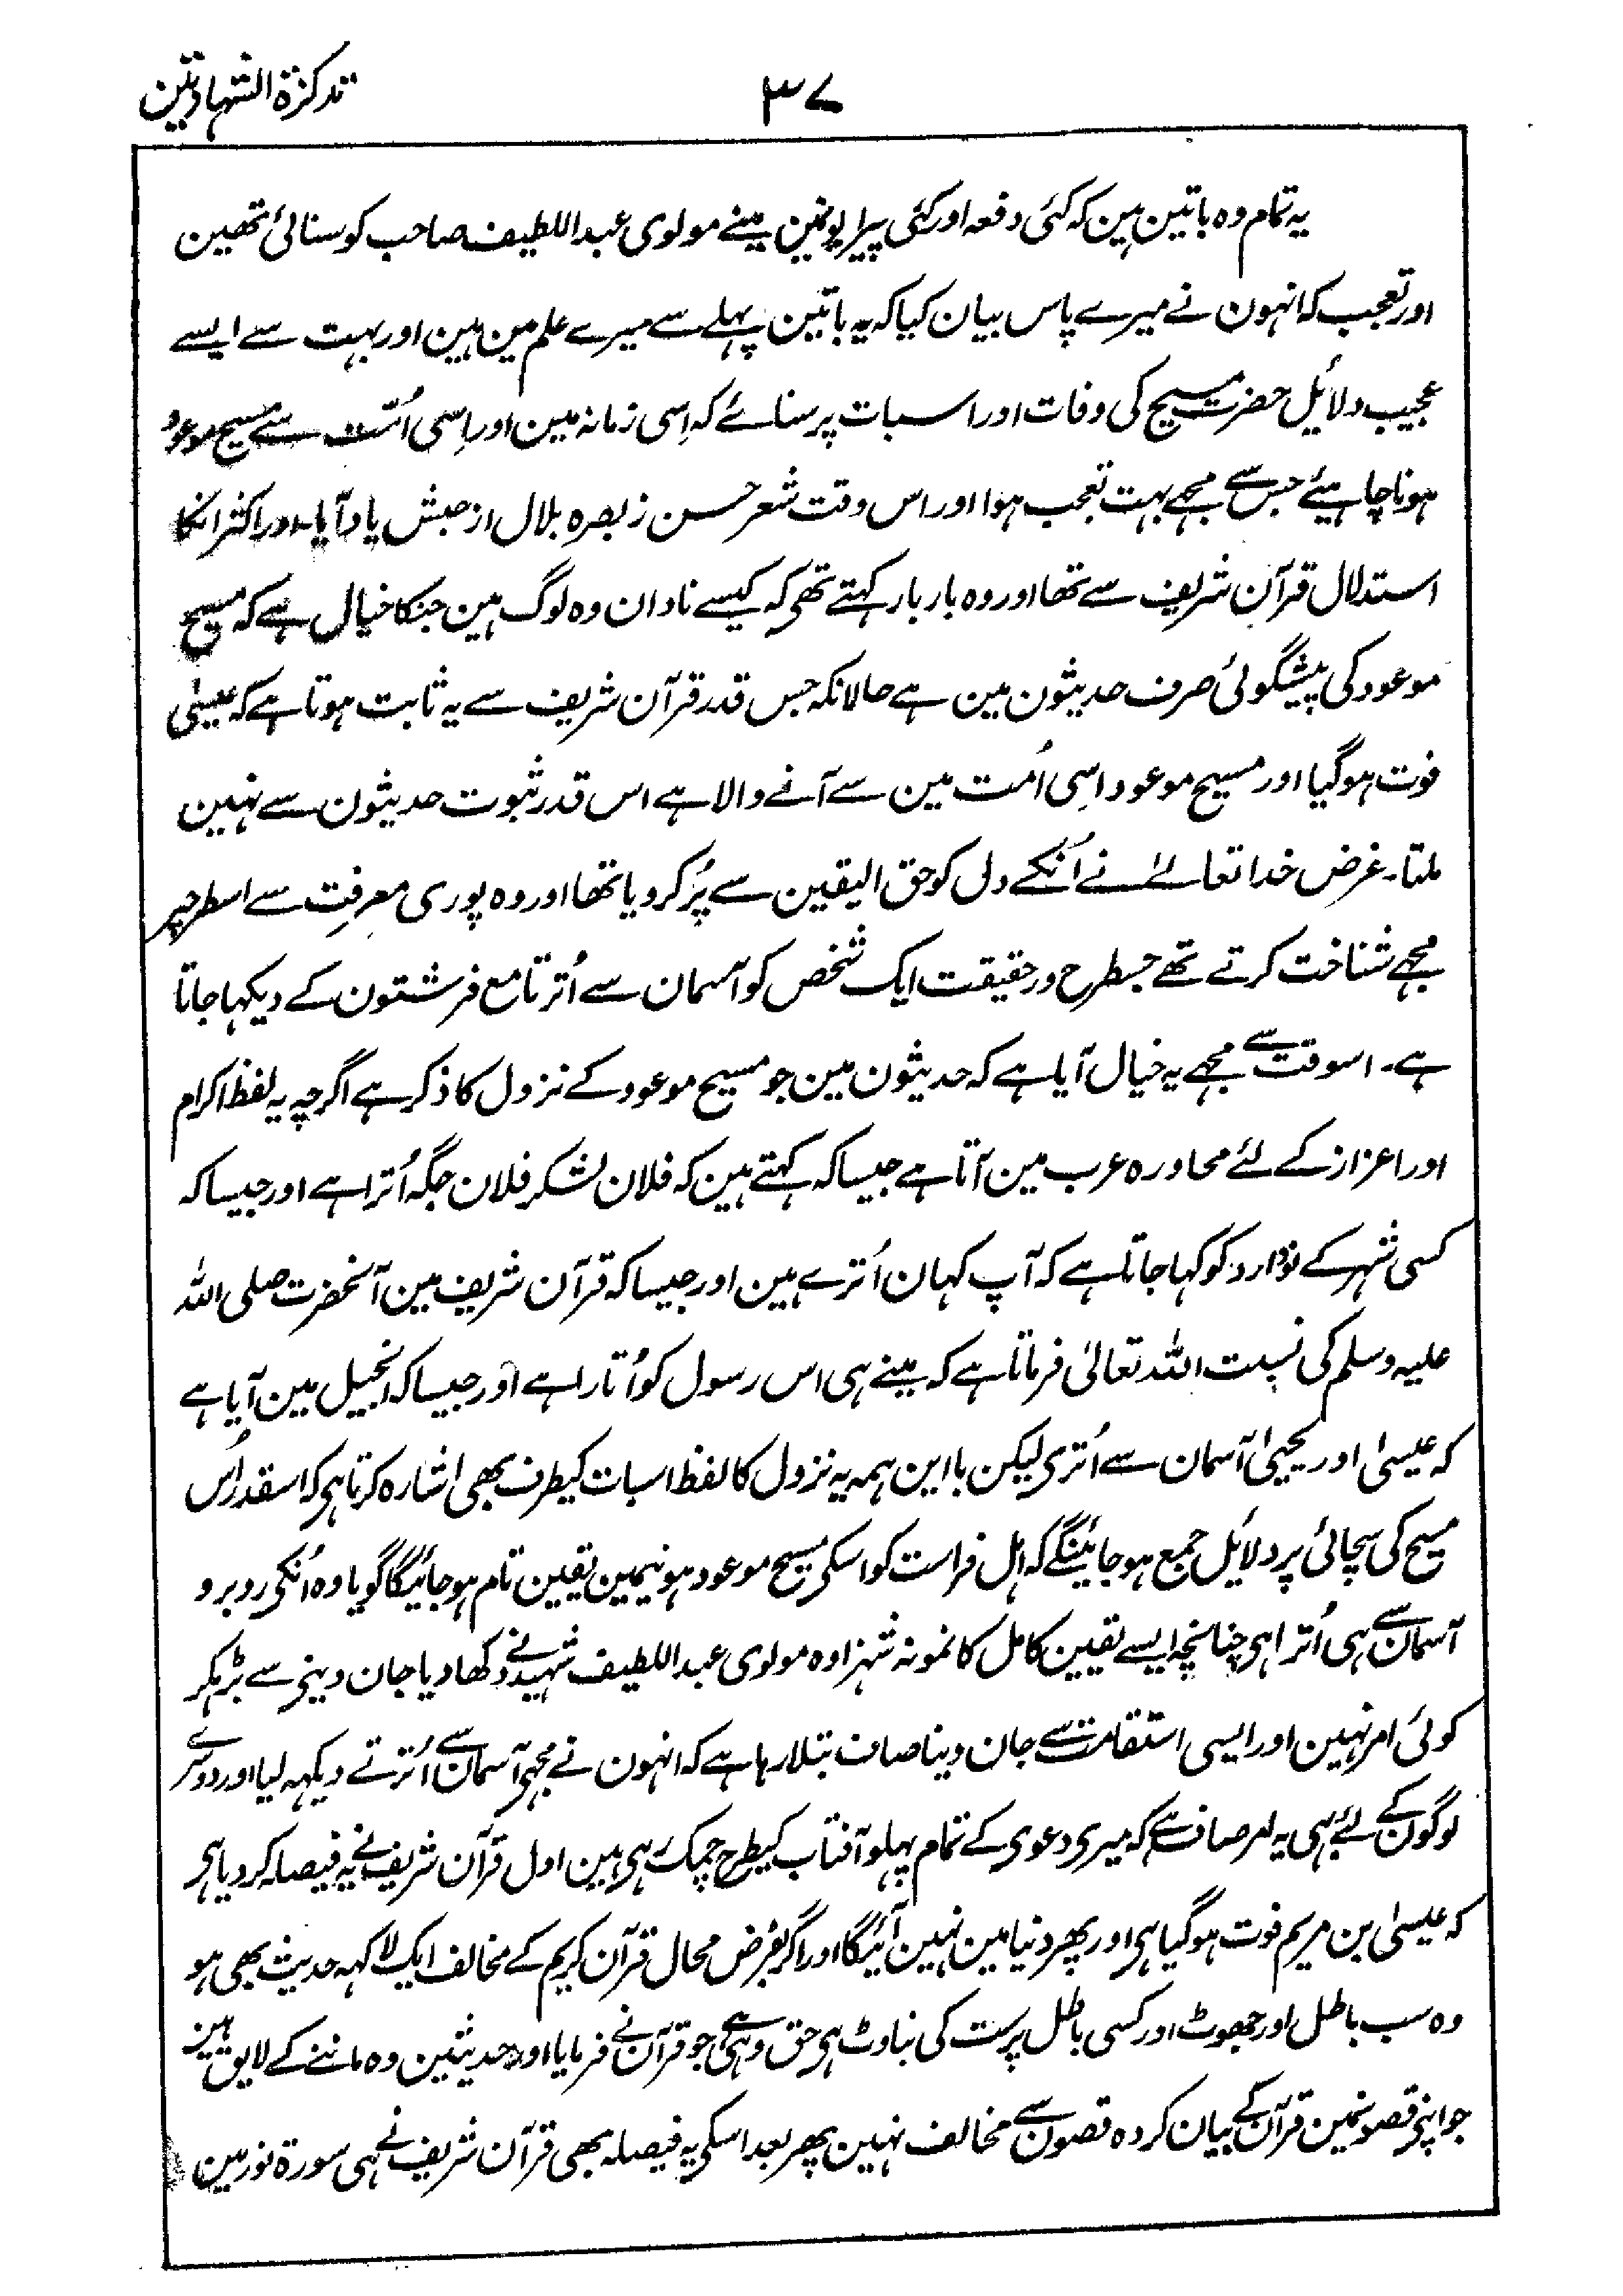 تذکرۃ الشہادتین
۳۷
یہ تمام وہ باتین ہین کہ کئی دفعہ اور کئی پیرایونمین مینے مولوی عبداللطیف صاحب کو سنائی تھین
اور تعجب کہ انہون نے میرے پاس بیان کیا کہ یہ باتین پہلے سے میرے علم مین ہین اور بہت سے ایسے
عجیب دلائیل حضرت مسیح کی وفات اور اسبات پر سنائے کہ اِسی زمانہ مین اور اِسی اُمّت سے مسیح موعود
ہونا چاہیئے جس سے مجہے بہت تعجب ہوا اور اس وقت شعر حسن ز بصرہ بلال از حبش یاد آیا۔ اور اکثر انکا
استدلال قرآن شریف سے تھا اور وہ بار بار کہتے تھے کہ کیسے نادان وہ لوگ ہین جنکا خیال ہے کہ مسیح
موعود کی پیشگوئی صرف حدیثون مین ہے حالانکہ جس قدر قرآن شریف سے یہ ثابت ہوتا ہے کہ عیسیٰ
فوت ہوگیا اور مسیح موعود اسِی اُمت مین سے آنے والا ہے اس قدر ثبوت حدیثون سے نہین
ملتا۔ غرض خدا تعالےٰ نے اُنکے دل کو حق الیقین سے پُر کر دیا تھا اور وہ پوری معرفت سے اسطرحپر
مجہے شناخت کرتے تھے جسطرح درحقیقت ایک شخص کو آسمان سے اُترتا مع فرشتون کے دیکہا جاتا
ہے۔ اسوقت سے مجہے یہ خیال آیا ہے کہ حدیثون مین جو مسیح موعود کے نزول کا ذکر ہے اگرچہ یہ لفظ اکرام
اور اعزاز کے لئے محاورہ عرب مین آتا ہے جیسا کہ کہتے ہین کہ فلان لشکر فلان جگہ اُترا ہے اور جیسا کہ
کسی شہر کے نووارد کو کہا جاتا ہے کہ آپ کہان اُترے ہین اور جیسا کہ قرآن شریف مین آنحضرت صلی اللہ
علیہ وسلم کی نسبت اللہ تعالیٰ فرماتا ہے کہ مینے ہی اس رسول کو اُتارا ہے اور جیسا کہ انجیل مین آیا ہے
کہ عیسیٰ اور یحییٰ آسمان سے اُتری لیکن با این ہمہ یہ نزول کا لفظ اسبات کیطرف بھی اشارہ کرتا ہی کہ اسقدر اُس
مسیح کی سچائی پر دلائیل جمع ہوجائینگے کہ اہل فراست کو اسکی مسیح موعود ہونیمین یقین تام ہوجائیگا گویا وہ اُنکی روبرو
آسمان سے ہی اُترا ہی چنانچہ ایسے یقین کامل کا نمونہ شہزادہ مولوی عبداللطیف شہید نے دکھا دیا جان دینے سے بڑہکر
کوئی امر نہین اور ایسی استقامت سے جان دینا صاف بتلا رہا ہے کہ انہون نے مجہی آسمان سے اُترتے دیکہہ لیا اور دوسرے
لوگون کے لئے ہی یہ امر صاف ہے کہ میری دعوی کے تمام پہلو آفتاب کیطرح چمک رہی ہین اول قرآن شریف نے یہ فیصلہ کر دیا ہی
کہ عیسیٰ بن مریم فوت ہوگیا ہی اور پھر دنیا مین نہین آئیگا اور اگر بفرض محال قرآن کریم کے مخالف ایک لاکہہ حدیث بھی ہو
وہ سب باطل اور جھوٹ اور کسی باطل پرست کی بناوٹ ہی حق وہی ہے جو قرآن نے فرمایا اور حدیثین وہ ماننے کے لایق ہین
جو اپنی قصونمین قرآن کے بیان کردہ قصون سے مخالف نہین پھر بعد اسکی یہ فیصلہ بھی قرآن شریف نے ہی سورۃ نور مین